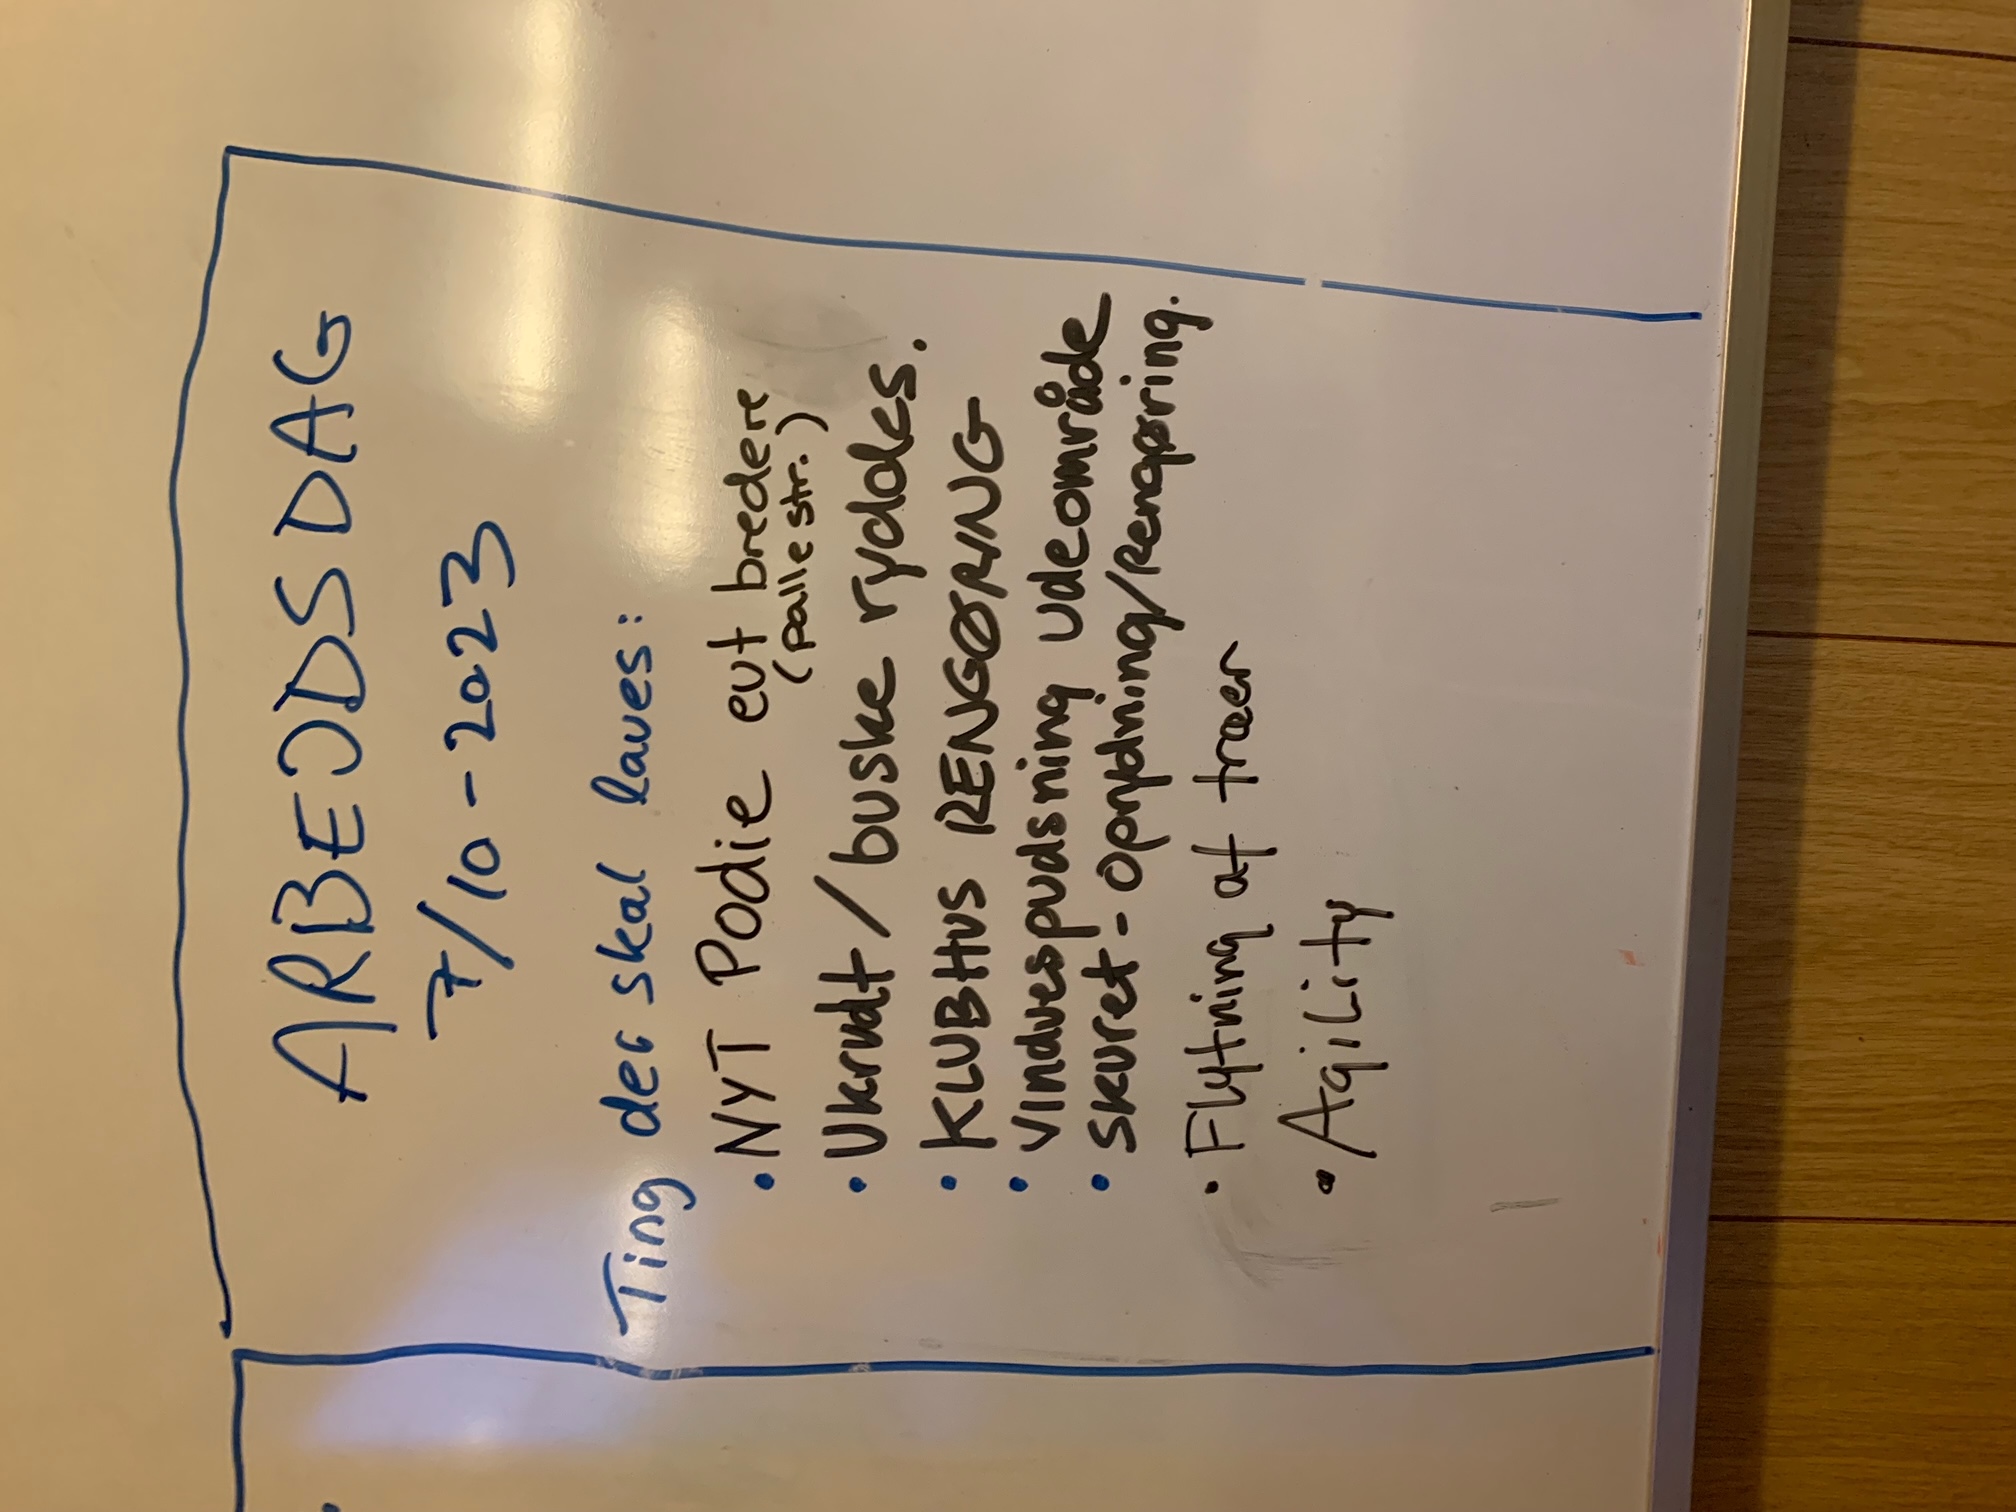 ARBEJDSDAG
7/10-2023
Ting der skal laves:
• NYT Podie evt bredere
(palle str.)
• Ukrudt/buske ryddes.
• KLUBHUS RENGØRING
• Vinduespudsning udeområde
• Skuret - oprydning/rengøring.
• Flytning af træer
• Agility